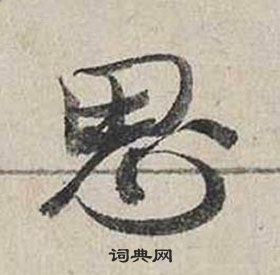 思
词典网